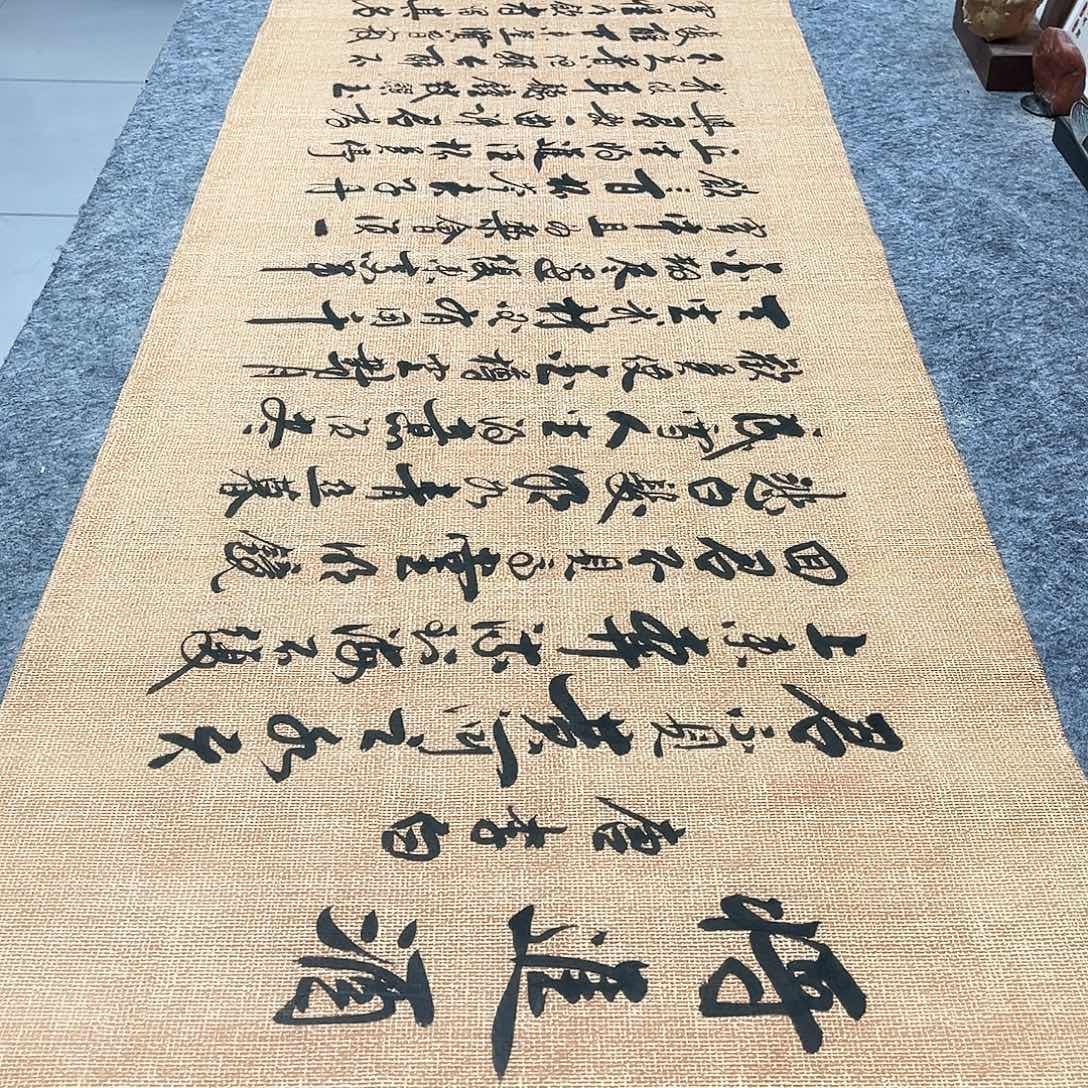 将進酒
唐李白
君不見黄河之水天
上来奔流到海不復
回君不見高堂明鏡
悲白髮朝如青絲暮
成雪人生得意須尽
歡莫使金樽空對月
天生我材必有用千
金散尽還復来烹羊
宰牛且为樂會須一
飲三百杯岑夫子丹
丘生将進酒杯莫停
與君歌一曲請君為
我傾耳聽鐘鼓饌玉
不足貴但願長醉不
復醒古来聖賢皆寂
寞惟有飲者留其名